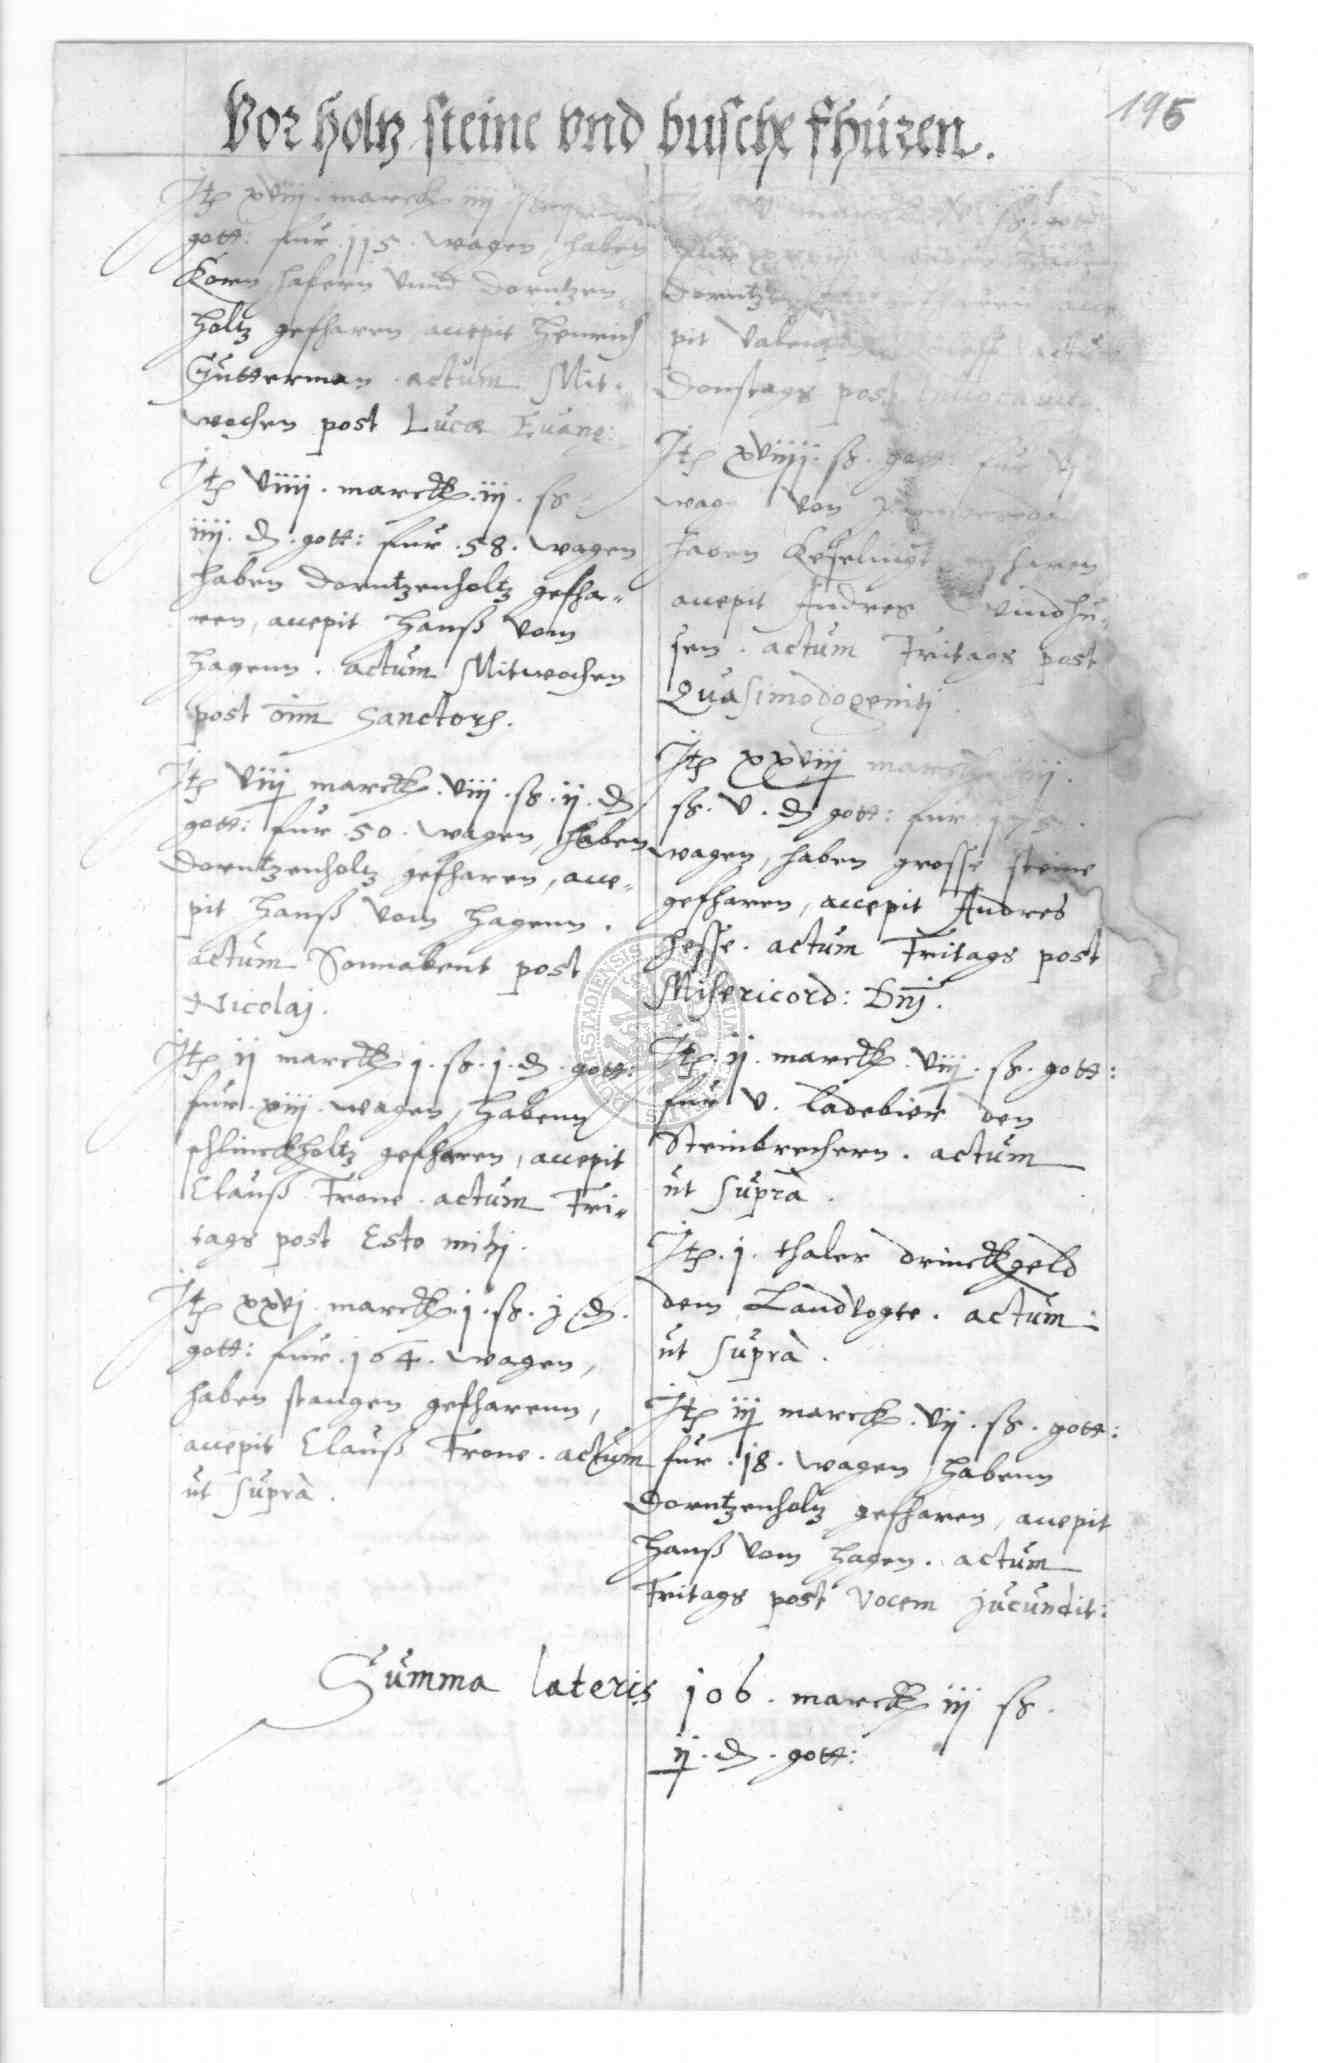 195
Vor holtz steine vnd busche fhuren.
Jtem xviij. marck iiij
gott: fur .115. wagen, haben
Korn, hafern vnnd Dorntzen
holtz gefharen, accepit Henrich
Gutterman . actum Mit-
wochen post Lucæ Euang:
Jtem viiij . marck . iij . ß
iiij . d . gott: fur . 58 . wagen
haben Dorntzenholtz gefha-
ren, accepit Hanß vom
Hagenn . actum Mitwochen
post oim Sanctorum .
Jtem viij marck . viij . ß . ij . d
gott: fur . 50 . wagen, haben
Dorntzenholtz gefharen, acce-
pit Hanß vom Hagenn .
actum Sonnabent post
Nicolaj .
Jtem ij marck j . ß . j . d . gott:
fur . xiij . wagen, habenn
schlinckholtz gefharen, accepit
Clauß Trone . actum Fri-
tags post Esto mihi .
Jtem xxvj . marck . j . ß . j . d .
gott: fur . 164 . wagen,
haben stangen gefharenn,
accepit Clauß Trone . actum
ut supra .
marck ß . gott
Dorntz
pit Valentin actum
Donstags post Inuocauit
Jtem xviiij . ß . gott: fur vj
wag von
haben gefharen
accepit Andres Vindhu-
sen . actum Fritags post
Quasimodogeniti .
Jtem xxviij marck iiij .
ß . v . d gott: fur . 175 .
wagen, haben grosse steine
gefharen, accepit Andres
Hesse . actum Fritags post
Misericord: Dnj .
Jtem . ij . marck . viij . ß . gott:
fur v . ladebier den
Steinbrechern . actum
ut supra .
Jtem . j . thaler drinckgeld
dem Landvogte . actum
ut supra .
Jtem iij marck . vij . ß . gott:
fur . 18 . wagen habenn
Dorntzenholtz gefharen, accepit
Hanß vom Hagen . actum
Fritags post Vocem jucundit:
Summa lateris 106 . marck iij ß .
ij . d . gott: